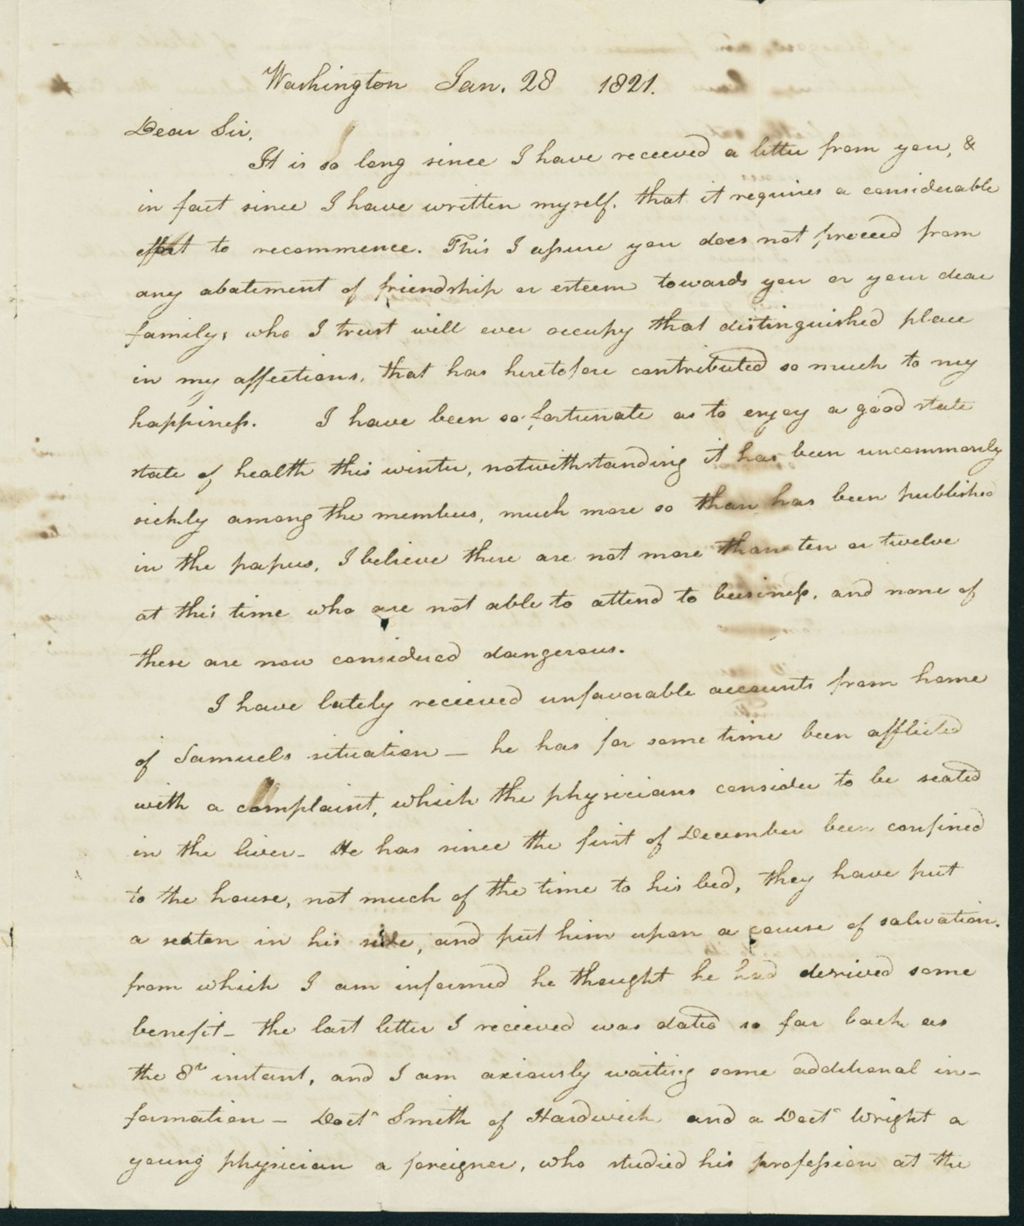 Washington Jan. 28 1821.
Dear Sir,
It is so long since I have receeved a letter from you, &
in fact since I have written myself, that it requires a considerable
effort to recommence. This I assure you does not proceed from
any abatement of friendship or esteem towards you or your dear
family, who I trust will ever occupy that distinguished place
in my affections, that has heretofore contributed so much to my
happiness. I have been so fortunate as to enjoy a good state
state of health this winter, notwithstanding it has been uncommonly
sickly among the members, much more so than has been published
in the papers, I believe there are not more than ten or twelve
at this time who are not able to attend to business, and none of
these are now considered dangerous.
I have lately recieved unfavorable accounts from home
of Samuels situation — he has for some time been afflicted
with a complaint, which the physicians consider to be seated
in the liver — He has since the first of December been confined
to the house, not much of the time to his bed, they have put
a seaton in his side, and put him upon a course of salivation.
from which I am informed he thought he had derived some
benefit — the last letter I receeved was dated so far back as
the 8th instant, and I am axiously waiting some additional in-
formation — Doctr Smith of Hardwick and a Doctr Wright a
young physician a foreigner, who studied his profession at the